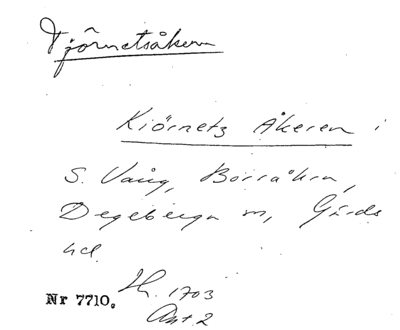 Tjörnetsåkern
Kiörnetz Åkeren i
S. Vång, Borråkra,
Degeberga m, Gärds
hd
Nr 7710. 1703
Akt 2